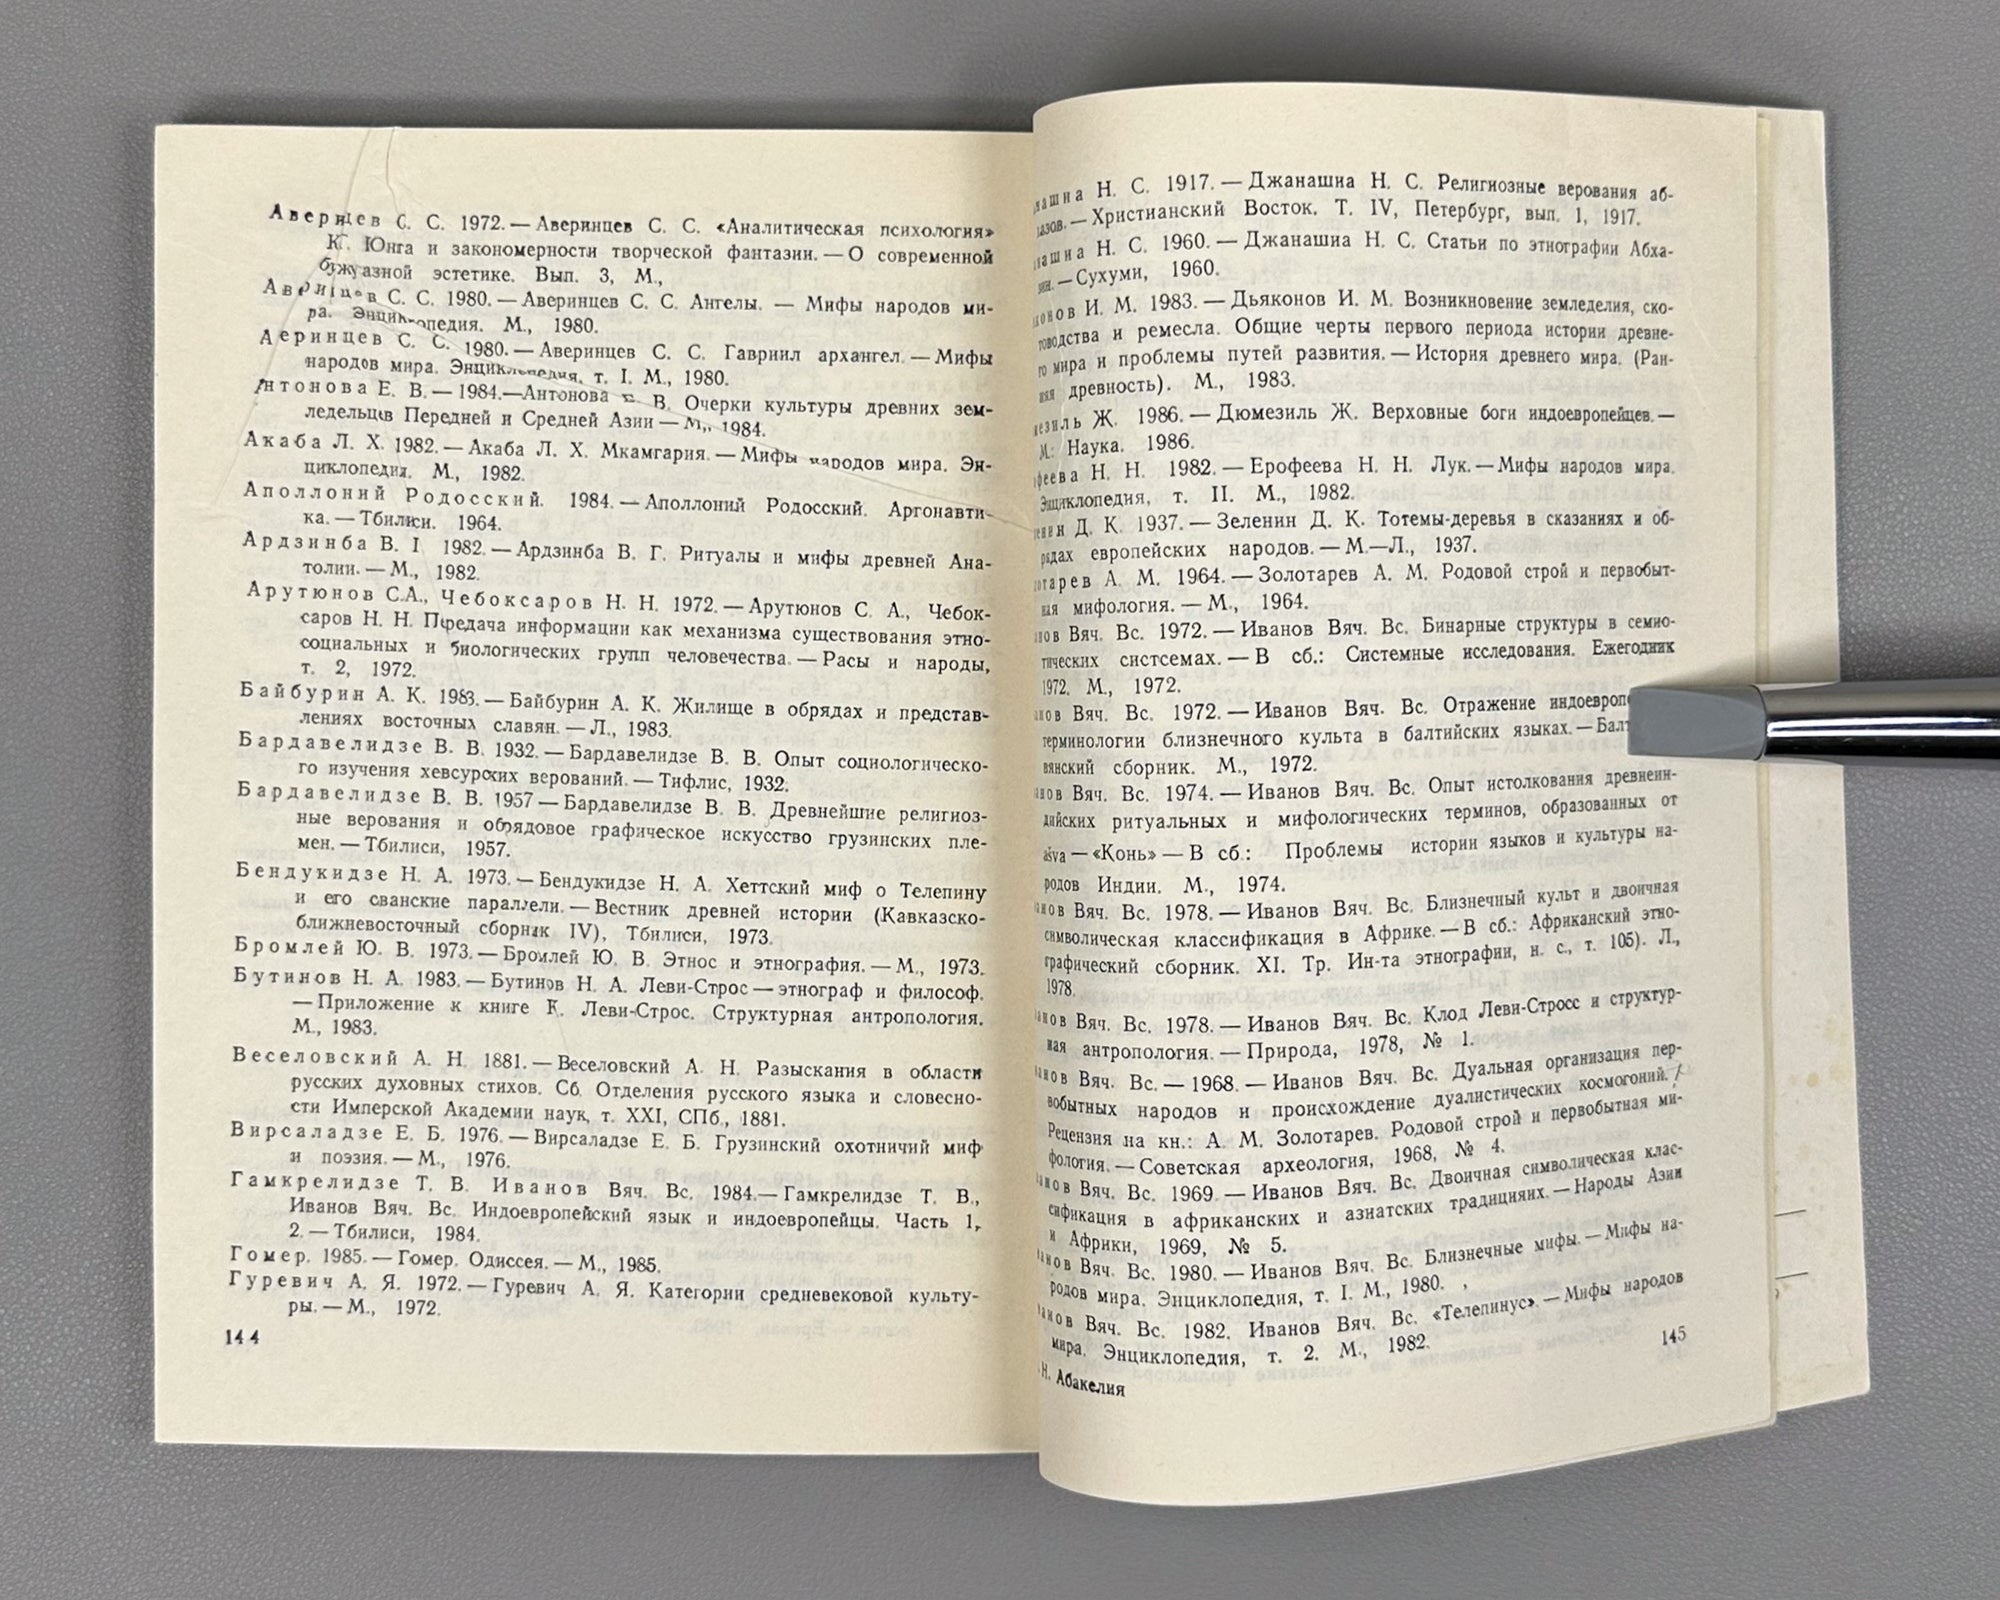 Аверинцев С. С. 1972. — Аверинцев С. С. «Аналитическая психология»
К. Юнга и закономерности творческой фантазии. — О современной
буржуазной эстетике. Вып. 3, М.,
Аверинцев С. С. 1980. — Аверинцев С. С. Ангелы. — Мифы народов ми-
ра. Энциклопедия. М., 1980.
Аеринцев С. С. 1980. — Аверинцев С. С. Гавриил архангел. — Мифы
народов мира. Энциклопедия, т. I. М., 1980.
Антонова Е. В. — 1984.—Антонова Е. В. Очерки культуры древних зем-
ледельцев Передней и Средней Азии — М., 1984.
Акаба Л. Х. 1982. — Акаба Л. Х. Мкамгария. — Мифы народов мира. Эн-
циклопедия. М., 1982.
Аполлоний Родосский. 1984. — Аполлоний Родосский. Аргонавти-
ка. — Тбилиси. 1964.
Ардзинба В. Г 1982. — Ардзинба В. Г. Ритуалы и мифы древней Ана-
толии. — М., 1982.
Арутюнов С.А., Чебоксаров Н. Н. 1972. — Арутюнов С. А., Чебок-
саров Н. Н. Передача информации как механизма существования этно-
социальных и биологических групп человечества. — Расы и народы,
т. 2, 1972.
Байбурин А. К. 1983. — Байбурин А. К. Жилище в обрядах и представ-
лениях восточных славян. — Л., 1983.
Бардавелидзе В. В. 1932. — Бардавелидзе В. В. Опыт социологическо-
го изучения хевсурских верований. — Тифлис, 1932.
Бардавелидзе В. В. 1957 — Бардавелидзе В. В. Древнейшие религиоз-
ные верования и обрядовое графическое искусство грузинских пле-
мен. — Тбилиси, 1957.
Бендукидзе Н. А. 1973. — Бендукидзе Н. А. Хеттский миф о Телепину
и его сванские параллели. — Вестник древней истории (Кавказско-
ближневосточный сборник IV), Тбилиси, 1973.
Бромлей Ю. В. 1973. — Бромлей Ю. В. Этнос и этнография. — М., 1973.
Бутинов Н. А. 1983. — Бутинов Н. А. Леви-Строс — этнограф и философ.
— Приложение к книге К. Леви-Строс. Структурная антропология.
М., 1983.
Веселовский А. Н. 1881. — Веселовский А. Н. Разыскания в области
русских духовных стихов. Сб. Отделения русского языка и словесно-
сти Имперской Академии наук, т. XXI, СПб., 1881.
Вирсаладзе Е. Б. 1976. — Вирсаладзе Е. Б. Грузинский охотничий миф
и поэзия. — М., 1976.
Гамкрелидзе Т. В. Иванов Вяч. Вс. 1984.— Гамкрелидзе Т. В.,
Иванов Вяч. Вс. Индоевропейский язык и индоевропейцы. Часть 1,
2. — Тбилиси, 1984.
Гомер. 1985. — Гомер. Одиссея. — М., 1985.
Гуревич А. Я. 1972. — Гуревич А. Я. Категории средневековой культу-
ры. — М., 1972.
144
нашиа Н. С. 1917. — Джанашиа Н. С. Религиозные верования аб-
хазов. — Христианский Восток. Т. IV, Петербург, вып. 1, 1917.
нашиа Н. С. 1960. — Джанашиа Н. С. Статьи по этнографии Абха-
зии. — Сухуми, 1960.
конов И. М. 1983. — Дьяконов И. М. Возникновение земледелия, ско-
товодства и ремесла. Общие черты первого периода истории древне-
го мира и проблемы путей развития. — История древнего мира. (Ран-
няя древность). М., 1983.
мезиль Ж. 1986. — Дюмезиль Ж. Верховные боги индоевропейцев. —
М: Наука. 1986.
феева Н. Н. 1982. — Ерофеева Н. Н. Лук. — Мифы народов мира.
Энциклопедия, т. II. М., 1982.
ленин Д. К. 1937. — Зеленин Д. К. Тотемы-деревья в сказаниях и об-
рядах европейских народов. — М.—Л., 1937.
отарев А. М. 1964. — Золотарев А. М. Родовой строй и первобыт-
ная мифология. — М., 1964.
нов Вяч. Вс. 1972. — Иванов Вяч. Вс. Бинарные структуры в семио-
тических систсемах. — В сб.: Системные исследования. Ежегодник
1972. М., 1972.
анов Вяч. Вс. 1972. — Иванов Вяч. Вс. Отражение индоевроп
терминологии близнечного культа в балтийских языках. — Балт
вянский сборник. М., 1972.
анов Вяч. Вс. 1974. — Иванов Вяч. Вс. Опыт истолкования древнеин-
дийских ритуальных и мифологических терминов, образованных от
ašva — «Конь» — В сб.: Проблемы истории языков и культуры на-
родов Индии. М., 1974.
анов Вяч. Вс. 1978. — Иванов Вяч. Вс. Близнечный культ и двоичная
символическая классификация в Африке. — В сб.: Африканский этно-
графический сборник. XI. Тр. Ин-та этнографии, н. с., т. 105). Л.,
1978.
анов Вяч. Вс. 1978. — Иванов Вяч. Вс. Клод Леви-Стросс и структур-
ная антропология. — Природа, 1978, № 1.
анов Вяч. Вс. — 1968. — Иванов Вяч. Вс. Дуальная организация пер-
вобытных народов и происхождение дуалистических космогоний.
Рецензия на кн.: А. М. Золотарев. Родовой строй и первобытная ми-
фология. — Советская археология, 1968, № 4.
анов Вяч. Вс. 1969. — Иванов Вяч. Вс. Двоичная символическая клас-
сификация в африканских и азиатских традициях. — Народы Азии
и Африки, 1969, № 5.
анов Вяч. Вс. 1980. — Иванов Вяч. Вс. Близнечные мифы. — Мифы на-
родов мира. Энциклопедия, т. I. М., 1980.
анов Вяч. Вс. 1982. Иванов Вяч. Вс. «Телепинус». — Мифы народов
мира. Энциклопедия, т. 2. М., 1982.
145
Н. Абакелия